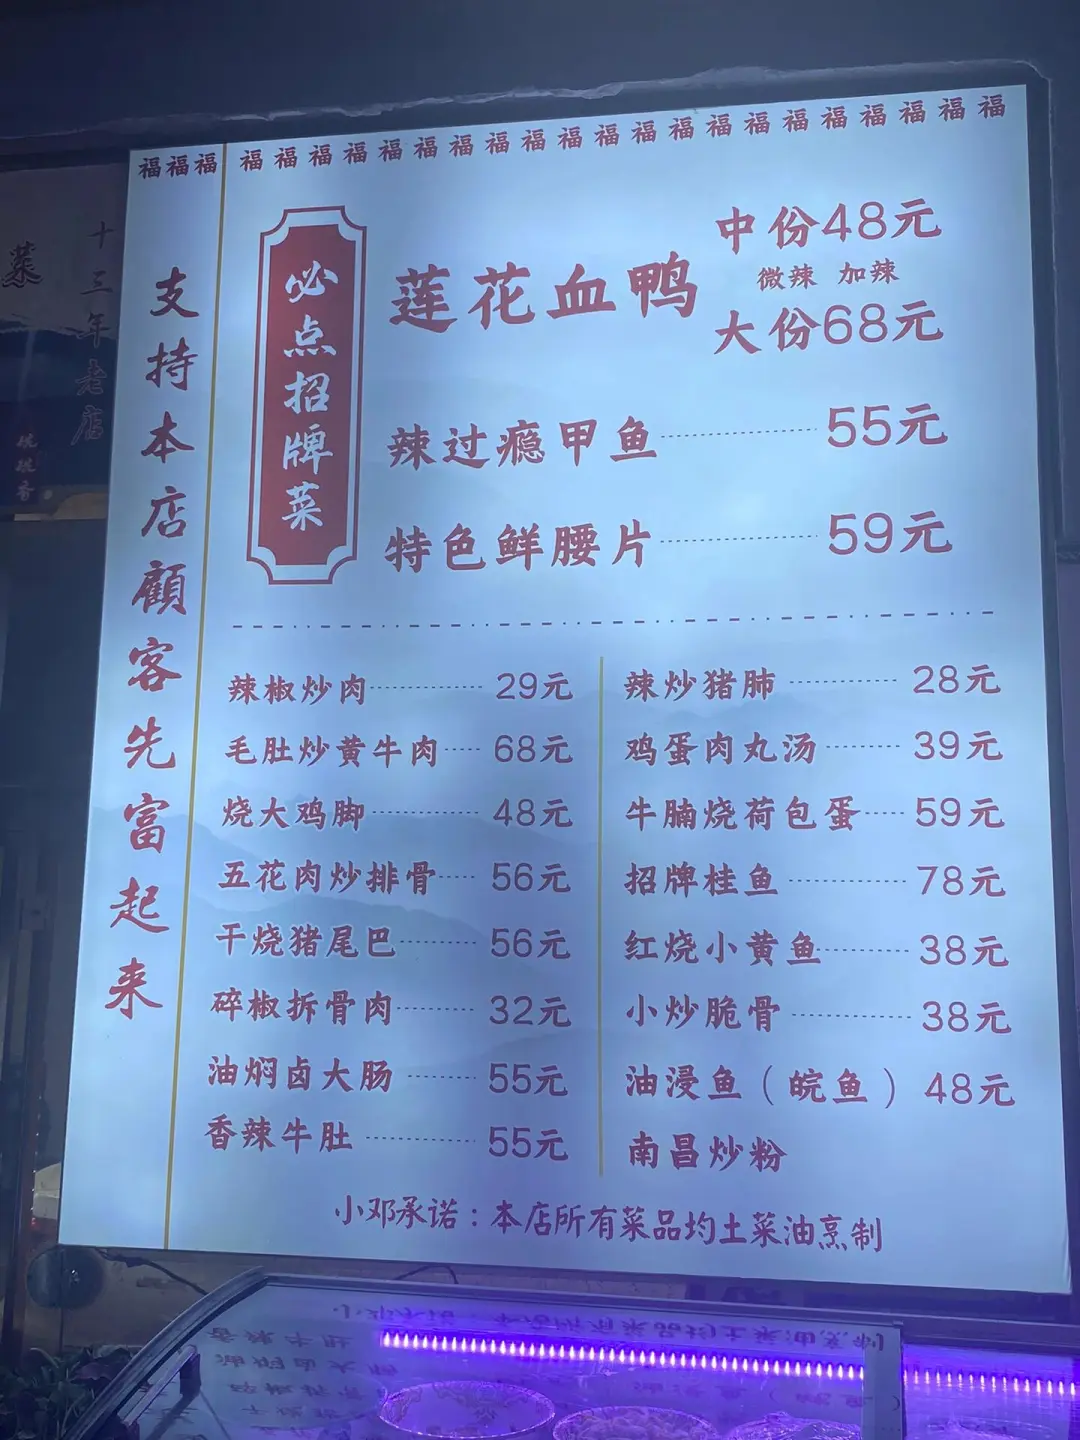 福福福 福福福福福福福福福福福福福福福福福福福福福
十三年老店
菜
支持本店顧客先富起来
必点招牌菜
莲花血鸭
中份48元
微辣 加辣
大份68元
辣过瘾甲鱼 55元
特色鲜腰片 59元
辣椒炒肉 29元
毛肚炒黄牛肉 68元
烧大鸡脚 48元
五花肉炒排骨 56元
干烧猪尾巴 56元
碎椒拆骨肉 32元
油焖卤大肠 55元
香辣牛肚 55元
辣炒猪肺 28元
鸡蛋肉丸汤 39元
牛腩烧荷包蛋 59元
招牌桂鱼 78元
红烧小黄鱼 38元
小炒脆骨 38元
油浸鱼（皖鱼）48元
南昌炒粉
小邓承诺：本店所有菜品均土菜油烹制